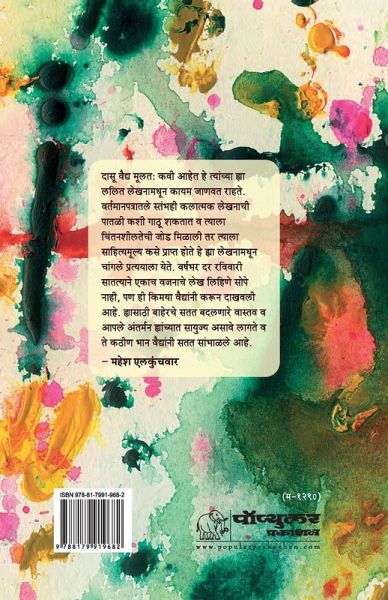 दासू वैद्य मूलतः कवी आहेत हे त्यांच्या ह्या
ललित लेखनामधून कायम जाणवत राहते.
वर्तमानपत्रातले स्तंभही कलात्मक लेखनाची
पातळी कशी गाठू शकतात व त्याला
चिंतनशीलतेची जोड मिळाली तर त्याला
साहित्यमूल्य कसे प्राप्त होते हे ह्या लेखनामधून
चांगले प्रत्ययाला येते. वर्षभर दर रविवारी
सातत्याने एकाच वजनाचे लेख लिहिणे सोपे
नाही, पण ही किमया वैद्यांनी करून दाखवली
आहे. ह्यासाठी बाहेरचे सतत बदलणारे वास्तव व
आपले अंतर्मन ह्यांच्यात सायुज्य असावे लागते व
ते कठीण भान वैद्यांनी सतत सांभाळले आहे.
– महेश एलकुंचवार
ISBN 978-81-7991-968-2
9 788179 919682
(म-१२९०)
पॉप्युलर
प्रकाशन
www.popularprakashan.com